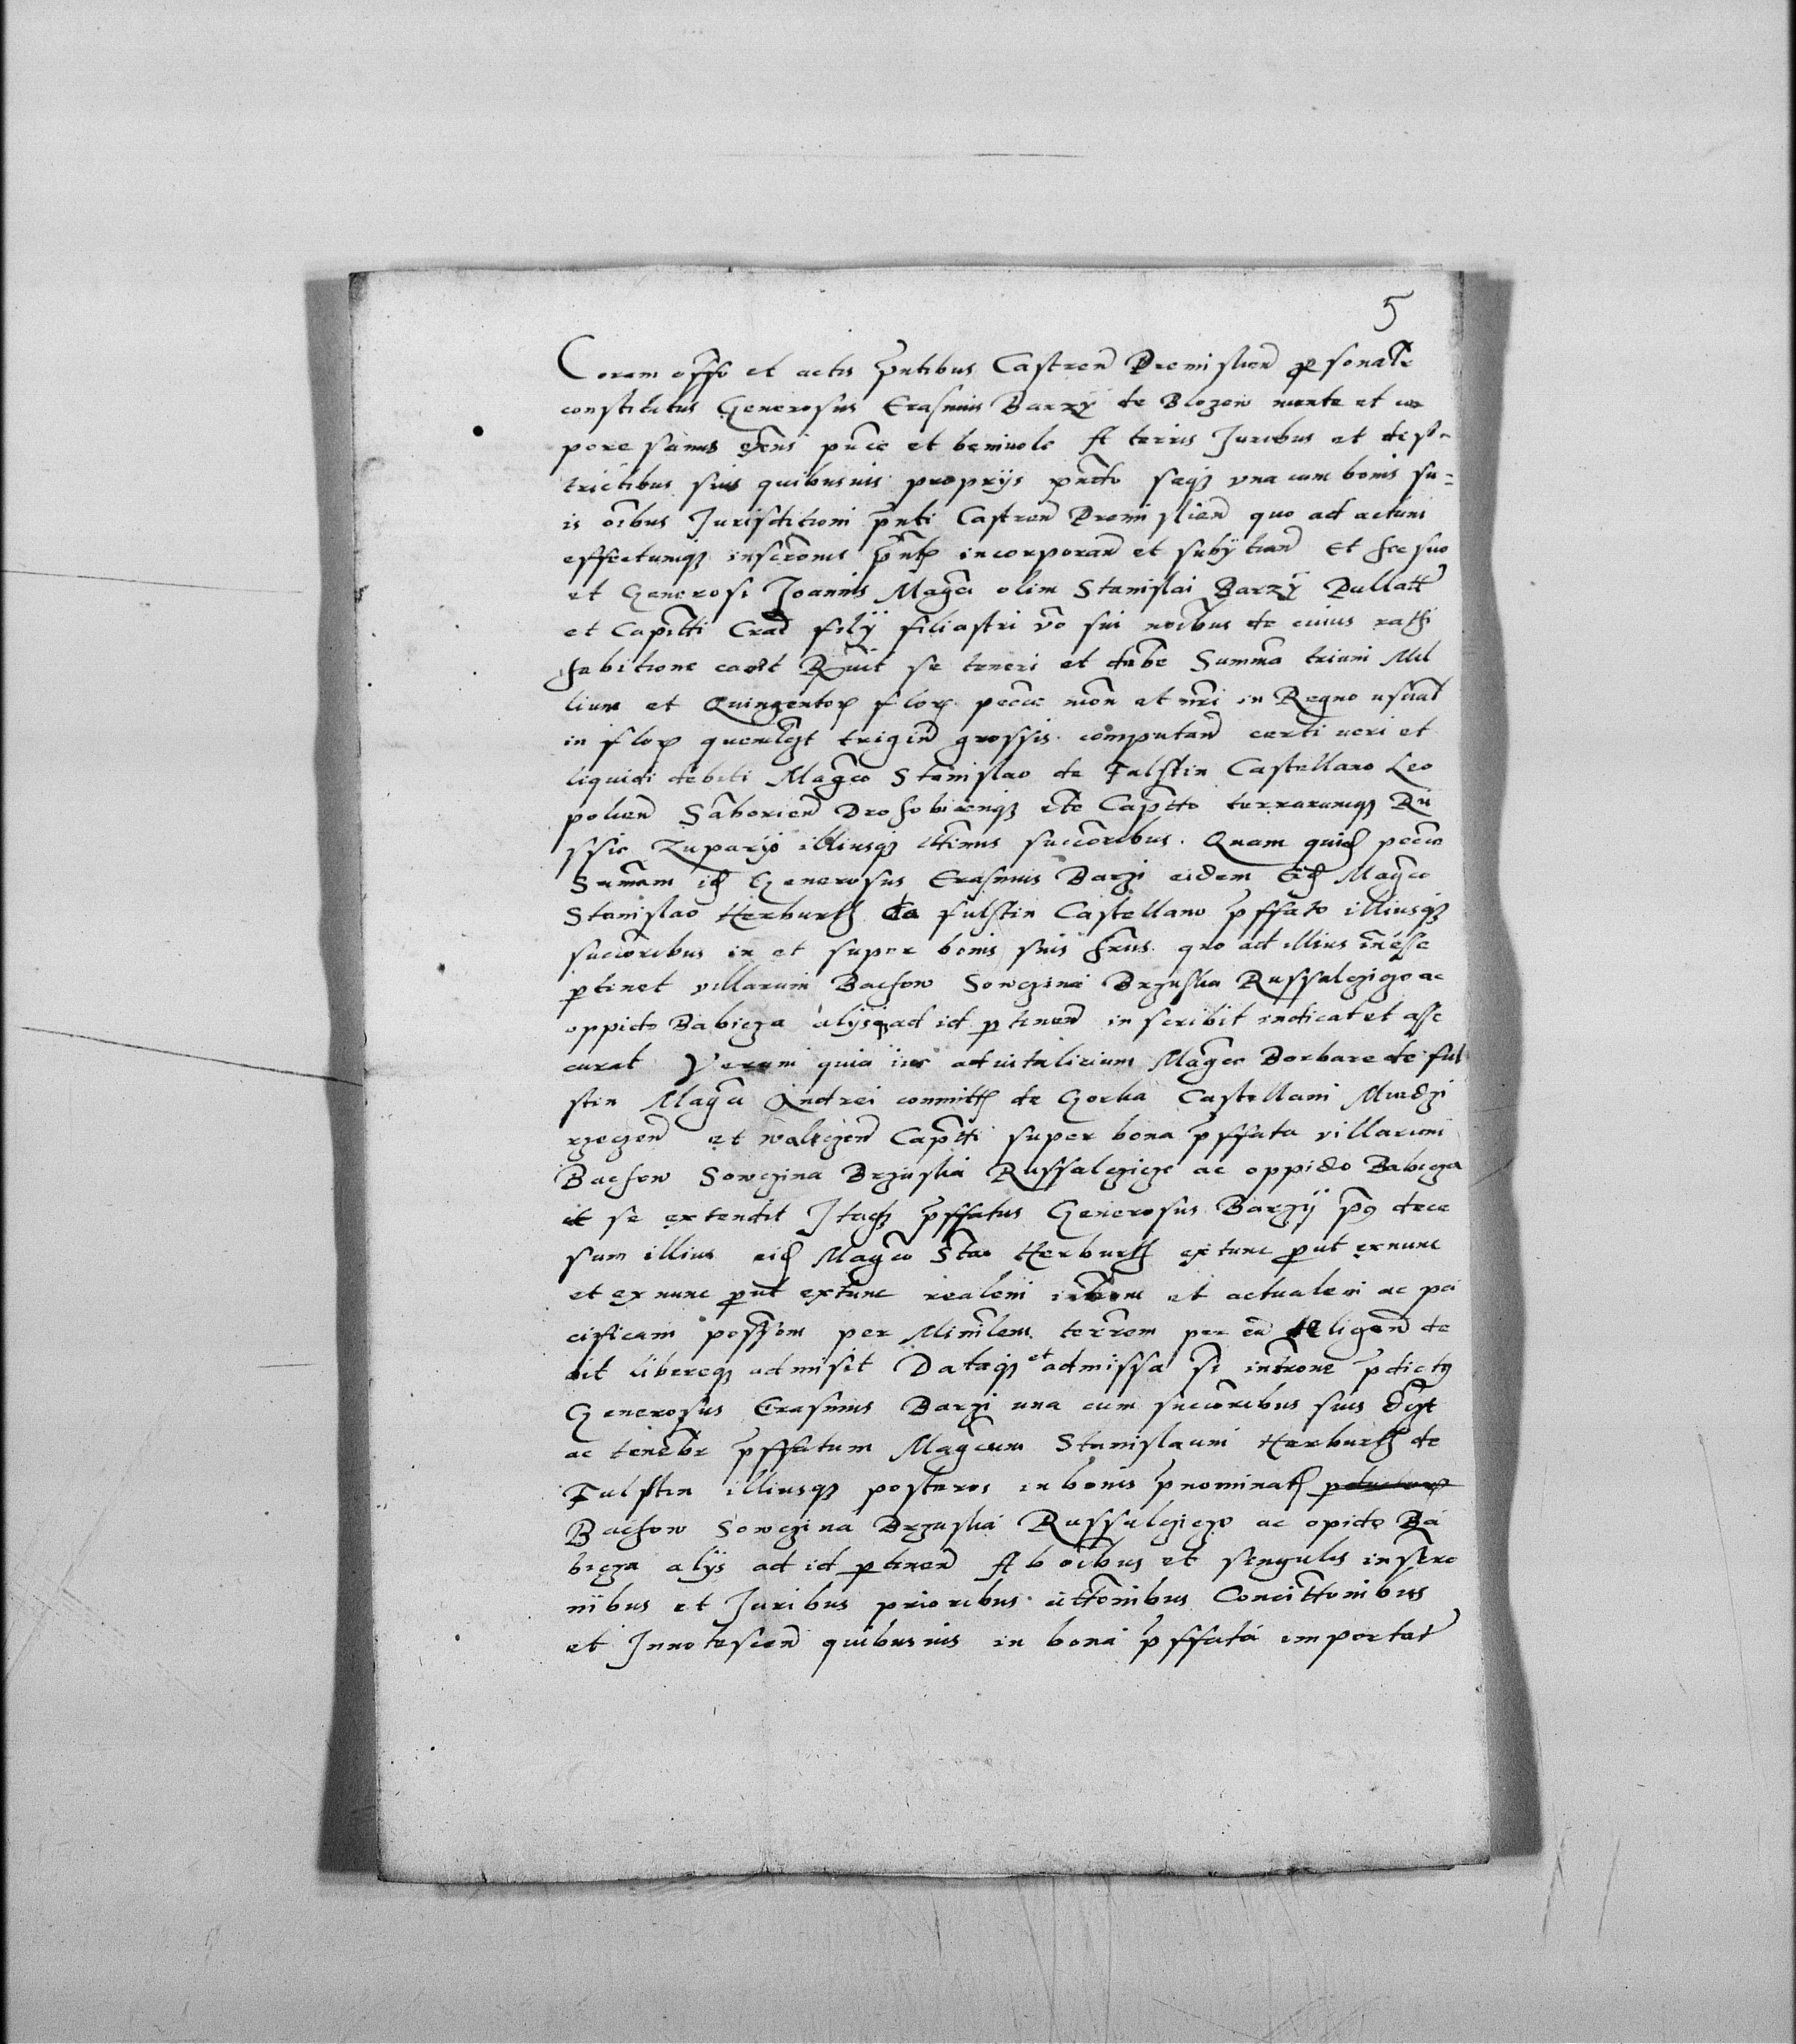 5
Coram offo et actis pntibus Castren Premislien personaliter
constitutus Generosus Erasmus Barzy de Blozew mente et cor
pore sanus exens pnce et benivole A terris Juribus et dist-
trictibus suis quibusvis proprijs pncto seqz vna cum bonis su=
is oibus Jurisditioni pnti Castren Premislien quo ad actum
effectumqz inscronis pntis incorporan et subijcian Et hic suo
et Generosi Joannis Magci olim Stanislai Barzy Pallatt
et Capitti Crac filij filiastri vo sui noibus de cuius rathi
habitione cavet Rcuit se teneri et debe Summa trium Mil
lium et Quingentor flor pecue mon et nri in Regno usual
in flor quemlgt trigin grossis computan certi veri et
liquidi debiti Magco Stanislao de Fulstin Castellano Leo
polien Saborien Drohobicenqz etc Capitto terrarumqz Ru
ssie Zupario illiusqz ltimis succoribus. Quam quid pecue
Summam id Generosus Erasmus Barzi eidem Magco
Stanislao Herburth de fulstin Castellano pffato illiusqz
succoribus in et super bonis suis hrus quo ad illius inesse
ptinet villarum Bachow Sowczina Brzuska Russalczicze ac
oppido Babicza alijsqz ad id ptinen inscribit indicat et asse
curat Verum quia ius aduitalicium Magce Barbare de ful
stin Magci Andrei commitis de Gorka Castellani Miedzi
rzeczen et Walczen Capitti super bona pffata villarum
Bachow Sowczina Brzuska Russalczicze ac oppido Babicza
se extendit Itaqz pffatus Generosus Barzij post dece
sum illius eid Magco Stao Herburth extunc prout exnunc
et ex nunc prout extunc realem introm et actualem ac pa
cificam possom per Minilem terrem per eu eligen de
dit libereqz admisit Dataqz et admissa si introne pdictus
Generosus Erasmus Barzi una cum succoribus suis
ac tenebr pffatum Magcum Stanislaum Herburth de
Fulstin illiusqz posteros in bonis pnominat
Bachow Sowczina Brzuska Russalczicze ac opido Ba
bicza alijs ad id ptinen Ab oibus et singulis inscro
nibus et Juribus prioribus cittonibus Concittonibus
et Innotescen quibusuis in bona pffata importat